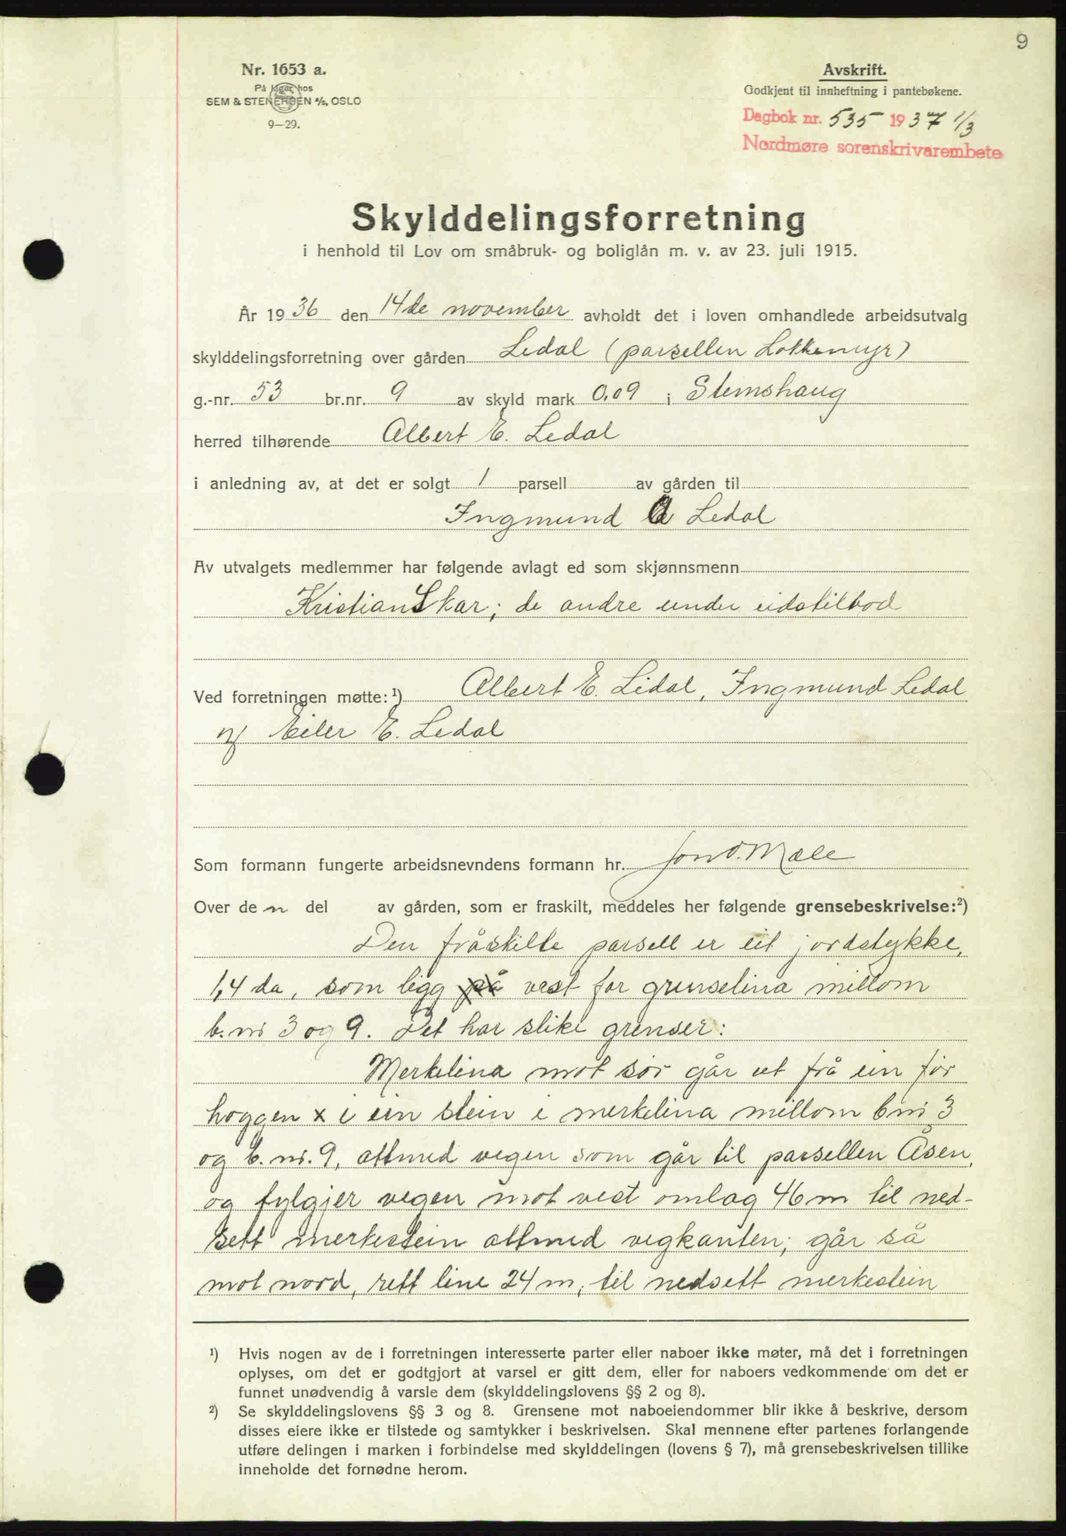 9
Nr. 1653 a.
På lager hos
SEM & STENERSEN A/S, OSLO
9—29.
Avskrift.
Godkjent til innheftning i pantebøkene.
Dagbok nr. 535 1937 1/3
Nordmøre sorenskrivarembete
Skylddelingsforretning
i henhold til Lov om småbruk- og boliglån m. v. av 23. juli 1915.
År 1936 den 14de november avholdt det i loven omhandlede arbeidsutvalg
skylddelingsforretning over gården Ledal (parsellen Løkkemyr)
g.-nr. 53 br.nr. 9 av skyld mark 0,09 i Stemshaug
herred tilhørende Albert E. Ledal
i anledning av, at det er solgt 1 parsell av gården til
Ingmund Ledal
Av utvalgets medlemmer har følgende avlagt ed som skjønnsmenn
Kristian Skar; de andre under eidstilbod
Ved forretningen møtte:¹) Albert E. Ledal, Ingmund Ledal
og Eiler E. Ledal
Som formann fungerte arbeidsnevndens formann hr. Jon O. Mæle
Over den del av gården, som er fraskilt, meddeles her følgende grensebeskrivelse:²)
Den fråskilte parsell er eit jordstykke,
1,4 da, som ligg på vest for grenselina millom
b.nr 3 og 9. Det har slike grenser:
Merkelina mot sør går ut frå ein før
hoggen x i ein stein i merkelina millom bnr 3
og b.nr. 9, attmed vegen som går til parsellen Åsen,
og fylgjer vegen mot vest omlag 46 m til ned-
sett merkestein attmed vegkanten; går så
mot nord, rett line 24 m, til nedsett merkestein
¹) Hvis nogen av de i forretningen interesserte parter eller naboer ikke møter, må det i forretningen
oplyses, om det er godtgjort at varsel er gitt dem, eller for naboers vedkommende om det er
funnet unødvendig å varsle dem (skylddelingslovens §§ 2 og 8).
²) Se skylddelingslovens §§ 3 og 8. Grensene mot naboeiendommer blir ikke å beskrive, dersom
disses eiere ikke er tilstede og samtykker i beskrivelsen. Skal mennene efter partenes forlangende
utføre delingen i marken i forbindelse med skylddelingen (lovens § 7), må grensebeskrivelsen tillike
inneholde det fornødne herom.